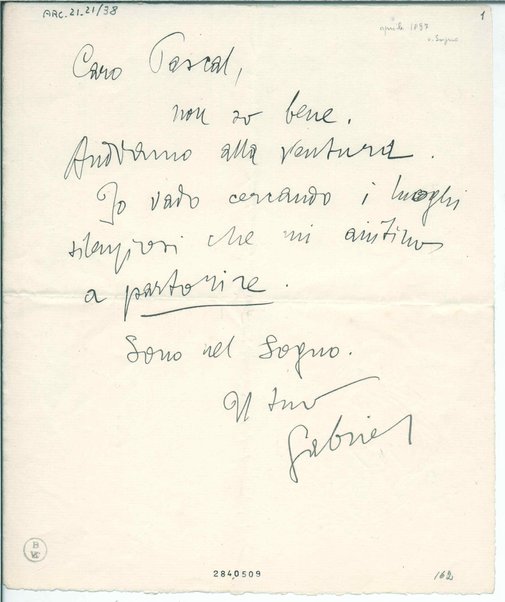 ARC.21.21/38
1
aprile 1897
Caro Pascal,
non so bene.
Andremo alla ventura.
Io vado cercando i luoghi
silenziosi che mi aiutino
a partorire.
Sono nel Sogno.
Il tuo
Gabriel
2840509
162